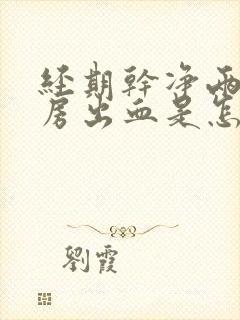 經期幹净兩
房出血是怎
劉霞